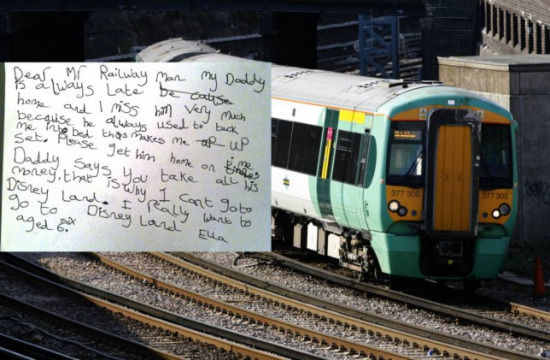 Dear Mr Railway man My Daddy
is always late be cause
home and I miss him very much
because he always used to tuck
me into bed this makes me up UP
set. Please get him home on time
Daddy says you take all his
money, that is why I cant go to
Disney Land. I really want to
go to Disney Land
Ella
aged 6. six
377 305
377 305